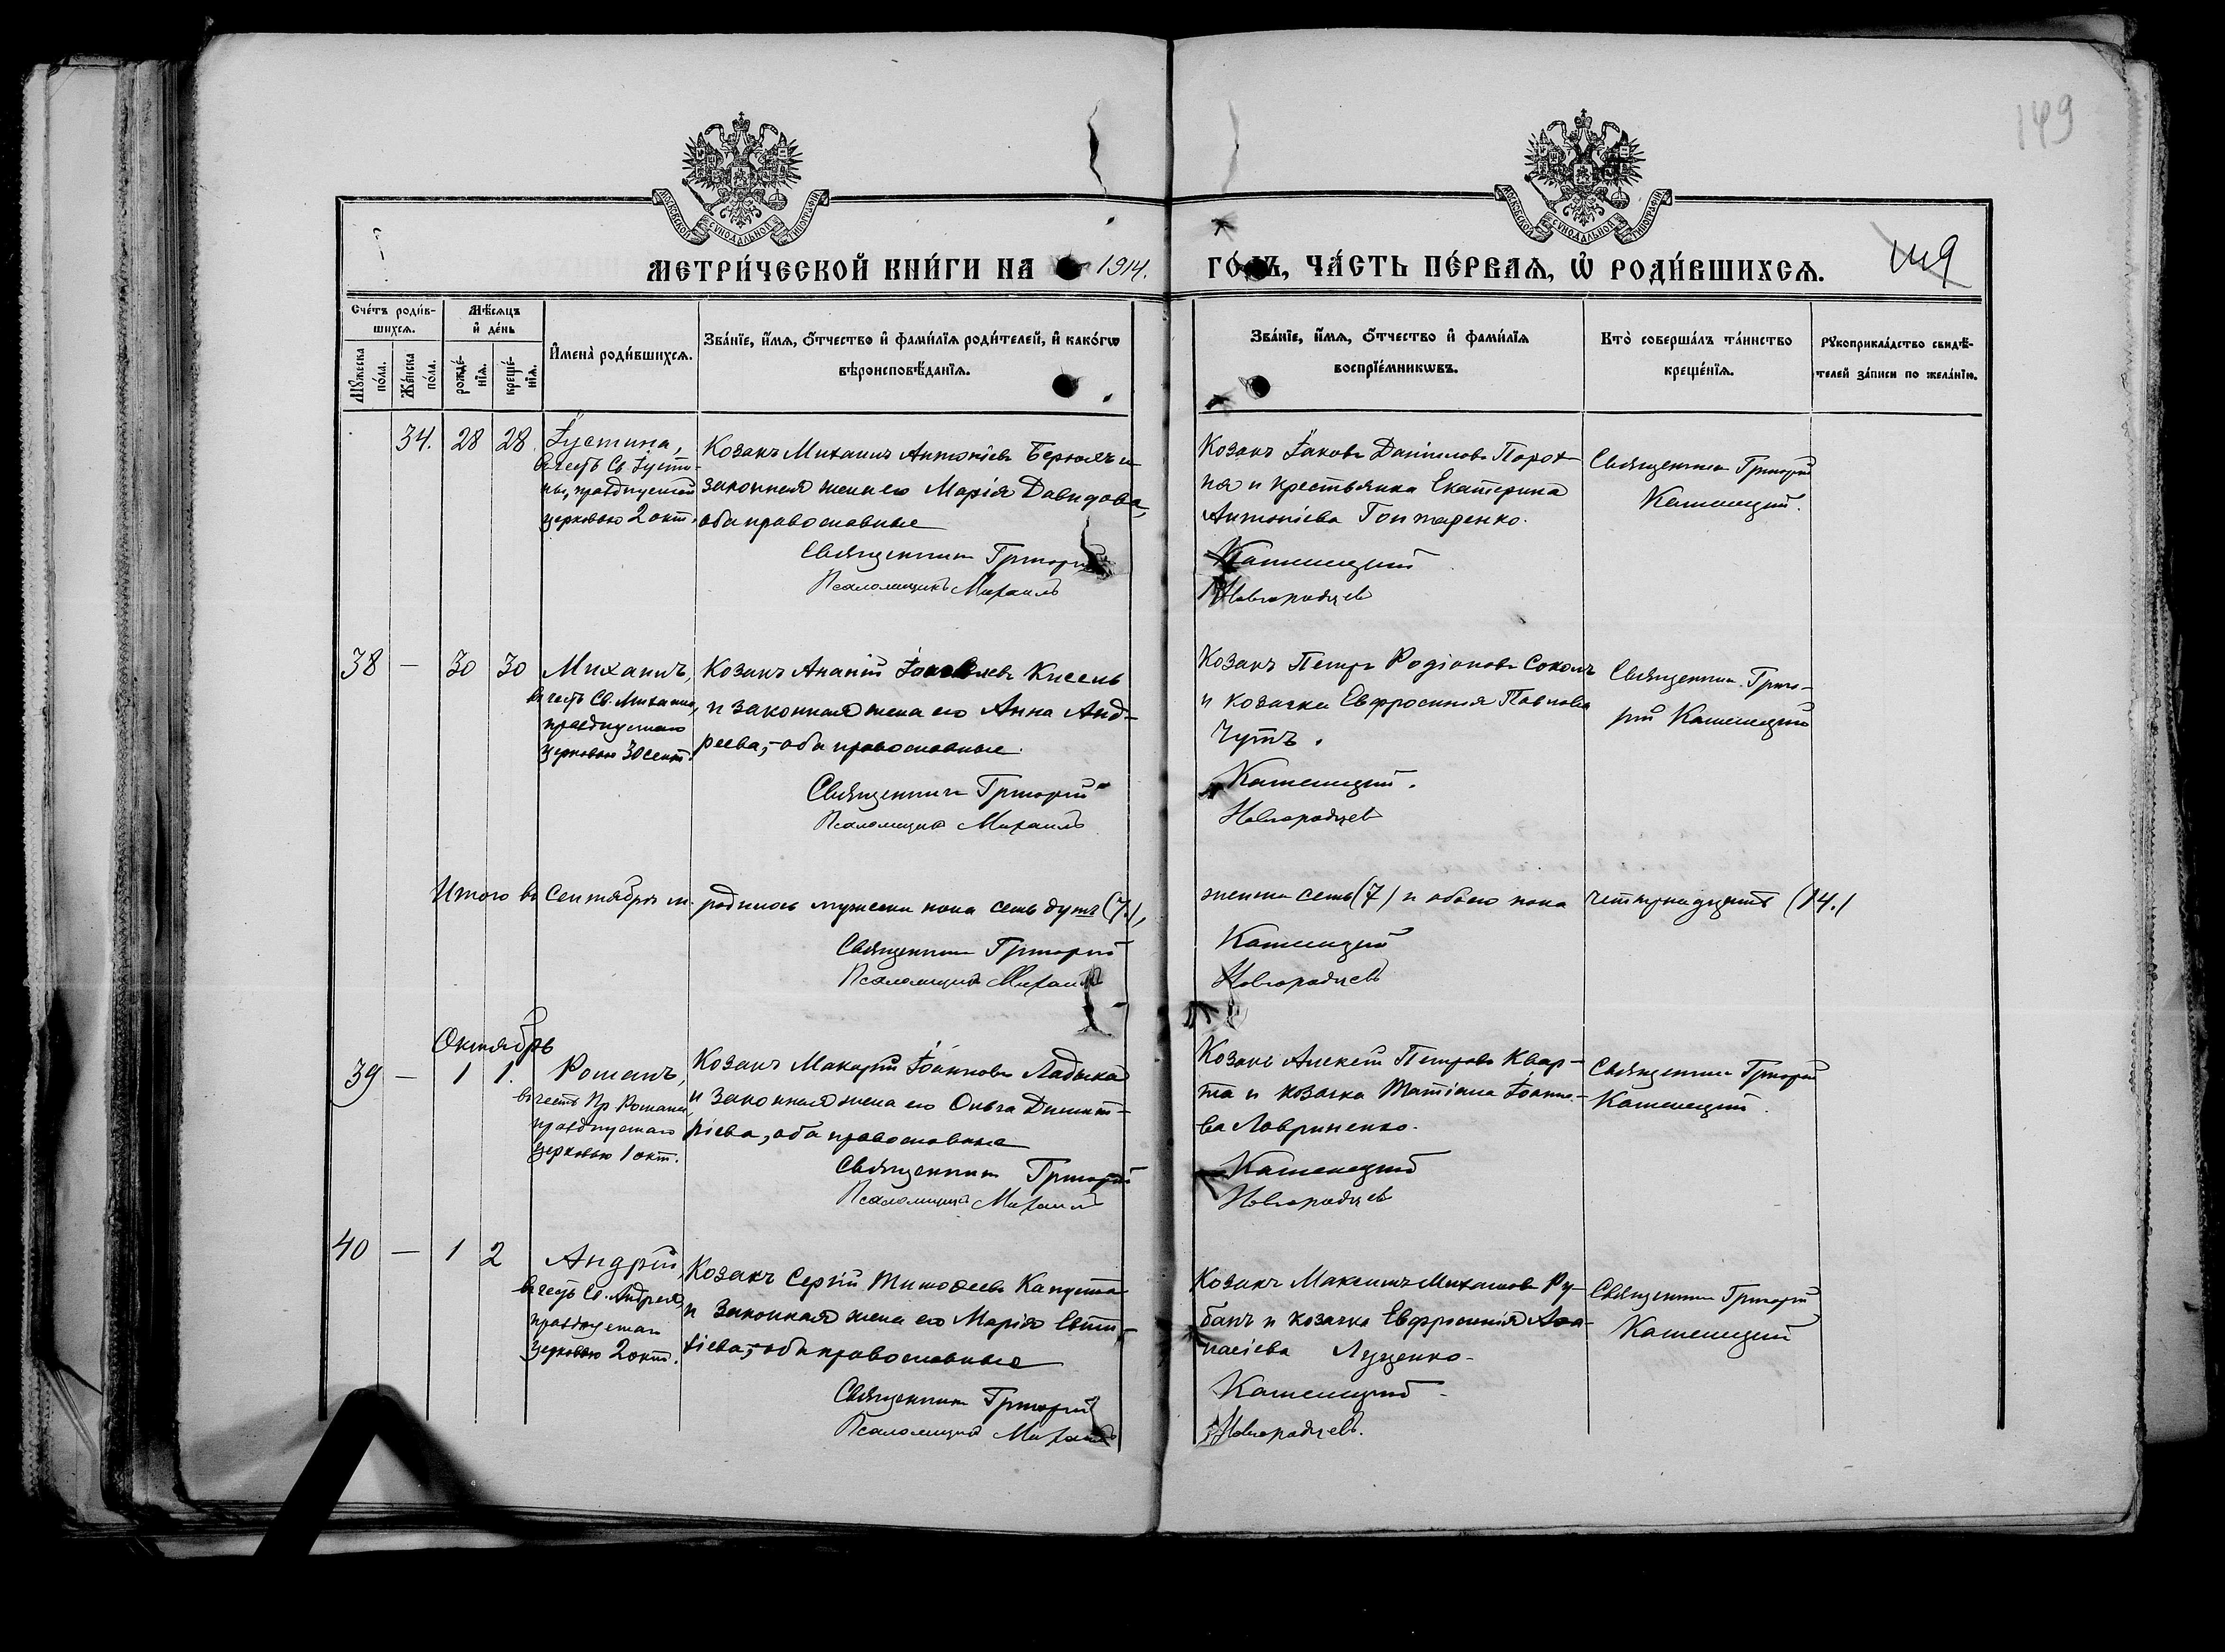 149
МОСКОВСКОЙ СѴНОДАЛЬНОЙ ТИПОГРАФІИ
МОСКОВСКОЙ СѴНОДАЛЬНОЙ ТИПОГРАФІИ
МЕТРИ́ЧЕСКОЙ КНИ́ГИ НА 1914. ГО́ДЪ, ЧА́СТЬ ПЕ́РВАЯ, Ѡ҆ РОДИ́ВШИХСЯ.
Сче́тъ роди́в-
шихся.
Мѣ́сяцъ
и҆ де́нь
Му́жеска
по́ла.
Же́нска
по́ла.
рожде́-
нїя.
креще́-
нїя.
И҆мена̀ роди́вшихся.
Зва́нїе, и҆́мя, ѻ҆́тчество и҆ фами́лїя роди́телей, и҆ како́гѡ
вѣроисповѣ́данїя.
Зва́нїе, и҆́мя, ѻ҆́тчество и҆ фами́лїя
воспрїе́мникѡвъ.
Кто̀ соверша́лъ та́инство
креще́нїя.
Рукоприкла́дство свидѣ́-
телей за́писи по жела́нїю.
34. 28 28
Іустина,
въ честь Св. Іусти-
ны, празднуемой
церковью 2 окт.
Козакъ Михаилъ Антоніевъ Берюлъ и
законная жена его Марія Давидова,
оба православные
Священникъ Григорій
Псаломщикъ Михаилъ
Козакъ Іаковъ Даніиловъ Порох-
ня и крестьянка Екатерина
Антоніева Гончаренко.
Каменецкій
Новгородцевъ
Священникъ Григорій
Каменецкій.
38 — 30 30
Михаилъ,
въ честь Св. Михаила,
празднуемаго
церковью 30 сент.
Козакъ Ананій Іаковлевъ Кисель
и законная жена его Анна Анд-
реева, - оба православные.
Священникъ Григорій
Псаломщикъ Михаилъ
Козакъ Петръ Родіоновъ Соколъ
и козачка Евфросинія Павлова
Чутъ.
Каменецкій.
Новгородцевъ
Священникъ Григо-
рій Каменецкій
Итого въ Сентябрѣ м. родилось мужеска пола семь душъ (7.), женска семь (7) и обоего пола четырнадцать (14.)
Священникъ Григорій
Псаломщикъ Михаилъ
Каменецкій
Новгородцевъ
Октябрь
39 — 1 1.
Романъ,
въ честь Пр. Романа,
празднуемаго
церковью 1 окт.
Козакъ Макарій Іоанновъ Ладыка
и законная жена его Ольга Димит-
ріева, оба православные
Священникъ Григорій
Псаломщикъ Михаилъ
Козакъ Алексій Петровъ Квар-
та и козачка Татіана Іоанно-
ва Лавриненко.
Каменецкій
Новгородцевъ
Священникъ Григорій
Каменецкій.
40 — 1 2
Андрей,
въ честь Св. Андрея,
празднуемаго
церковью 2 окт.
Козакъ Сергій Тимоѳеевъ Капуста
и законная жена его Марія Евти-
хіева, - оба православные
Священникъ Григорій
Псаломщикъ Михаилъ
Козакъ Максимъ Михаиловъ Ру-
банъ и козачка Евфросинія Аѳа-
насіева Луценко.
Каменецкій
Новгородцевъ.
Священникъ Григорій
Каменецкій